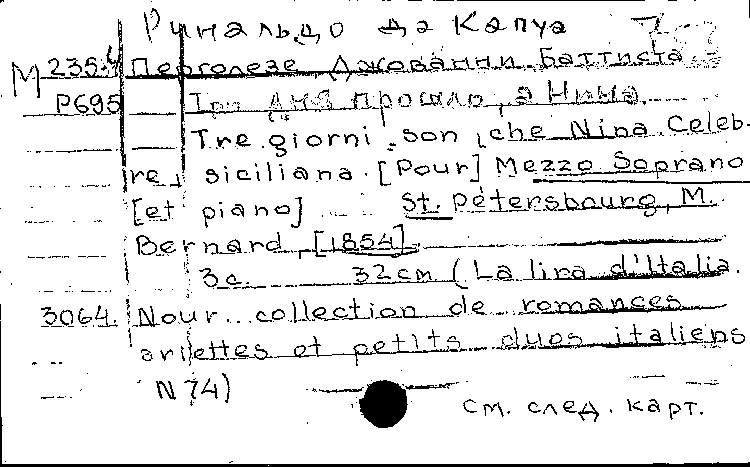 Ринальдо да Капуа
М 235.4 Перголезе, Джованни Баттиста
Р695 Три дня прошло, а Нина
Tre giorni son che Nina. Celeb-
re siciliana. [Pour] Mezzo Soprano
[et piano] St. Petersbourg, M.
Bernard, [1854].
3 с. 32 cm (La lira d'Italia.
3064. Nouv. collection de romances
ariettes et petits duos italiens
N 74)
см. след. карт.